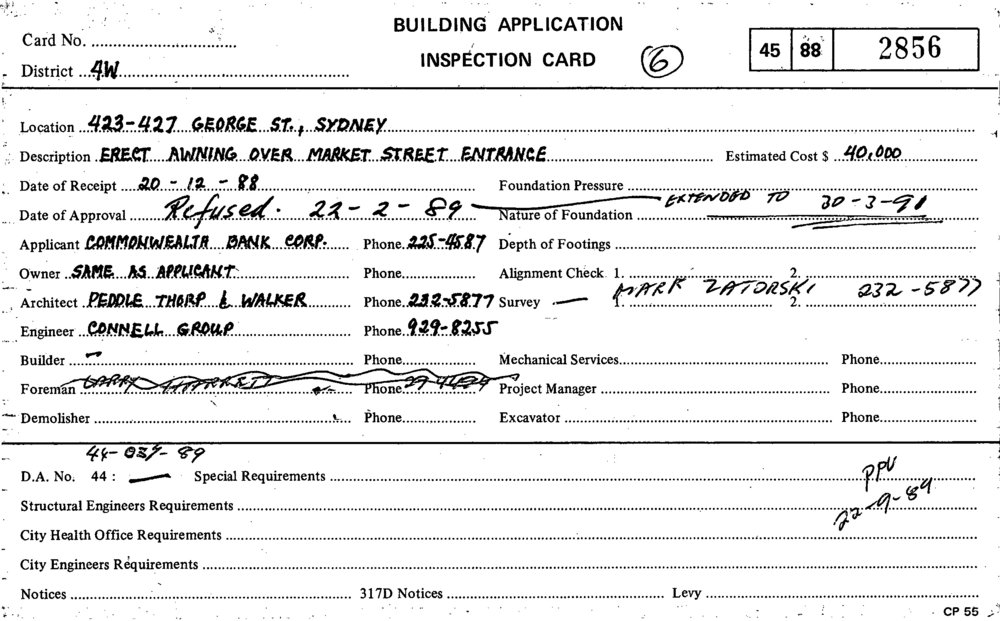 BUILDING APPLICATION
Card No.
INSPECTION CARD 6 45 88 2856
District 4W
Location 423-427 GEORGE ST., SYDNEY
Description ERECT AWNING OVER MARKET STREET ENTRANCE Estimated Cost $ 40,000
Date of Receipt 20 - 12 - 88 Foundation Pressure
EXTENDED TO 30-3-91
Date of Approval Refused. 22-2-89 Nature of Foundation
Applicant COMMONWEALTH BANK CORP. Phone. 225-4587 Depth of Footings
Owner SAME AS APPLICANT Phone Alignment Check 1. 2.
MARK ZATORSKI 232-5877
Architect PEDDLE THORP & WALKER Phone. 232-5877 Survey - 1. 2.
Engineer CONNELL GROUP Phone. 929-8255
Builder - Phone Mechanical Services Phone
Foreman LARRY Phone Project Manager Phone
Demolisher Phone Excavator Phone
D.A. No. 44 : Special Requirements
PPU
Structural Engineers Requirements
22-9-89
City Health Office Requirements
City Engineers Requirements
Notices 317D Notices Levy
CP 55